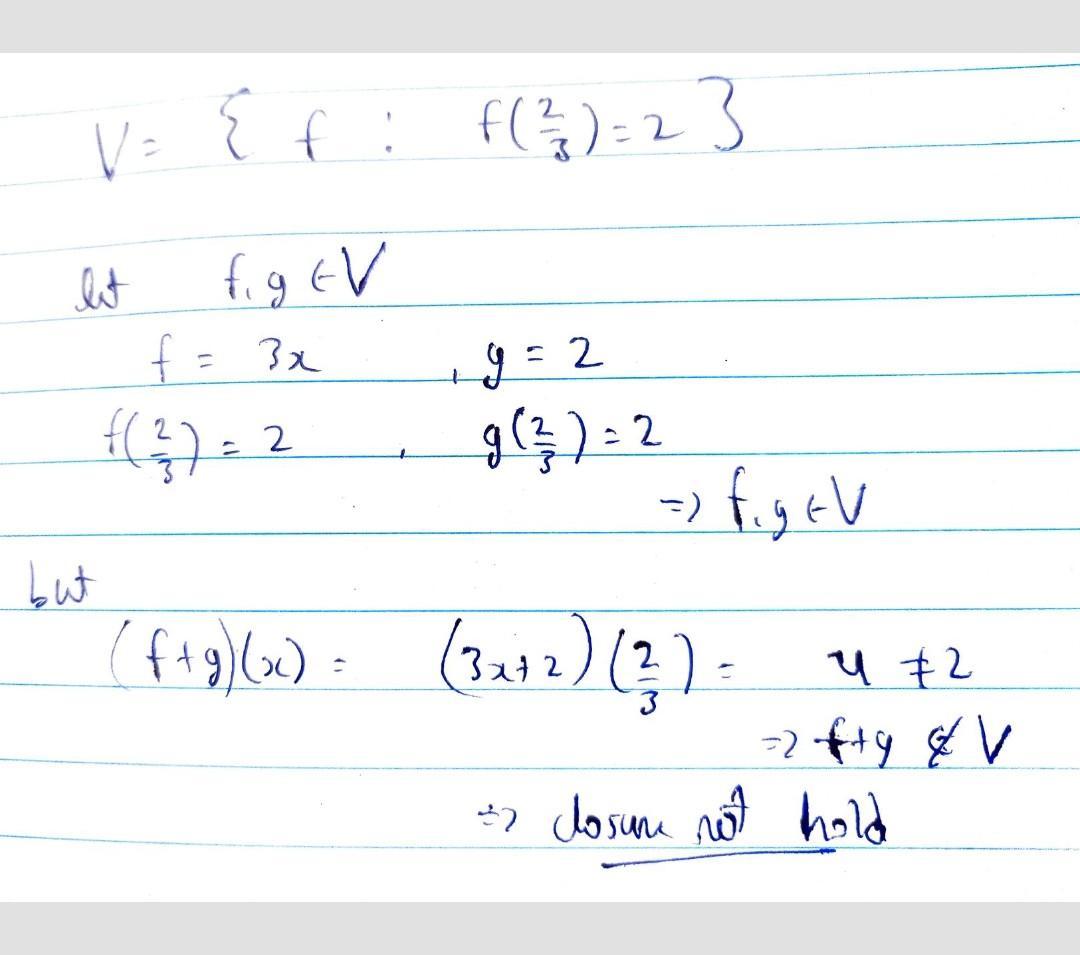 V = { f : f(2/3) = 2 }
let f, g ∈ V
f = 3x , g = 2
f(2/3) = 2 , g(2/3) = 2
=> f, g ∈ V
but
(f+g)(x) = (3x+2)(2/3) = 4 ≠ 2
=> f+g ∉ V
=> closure not hold